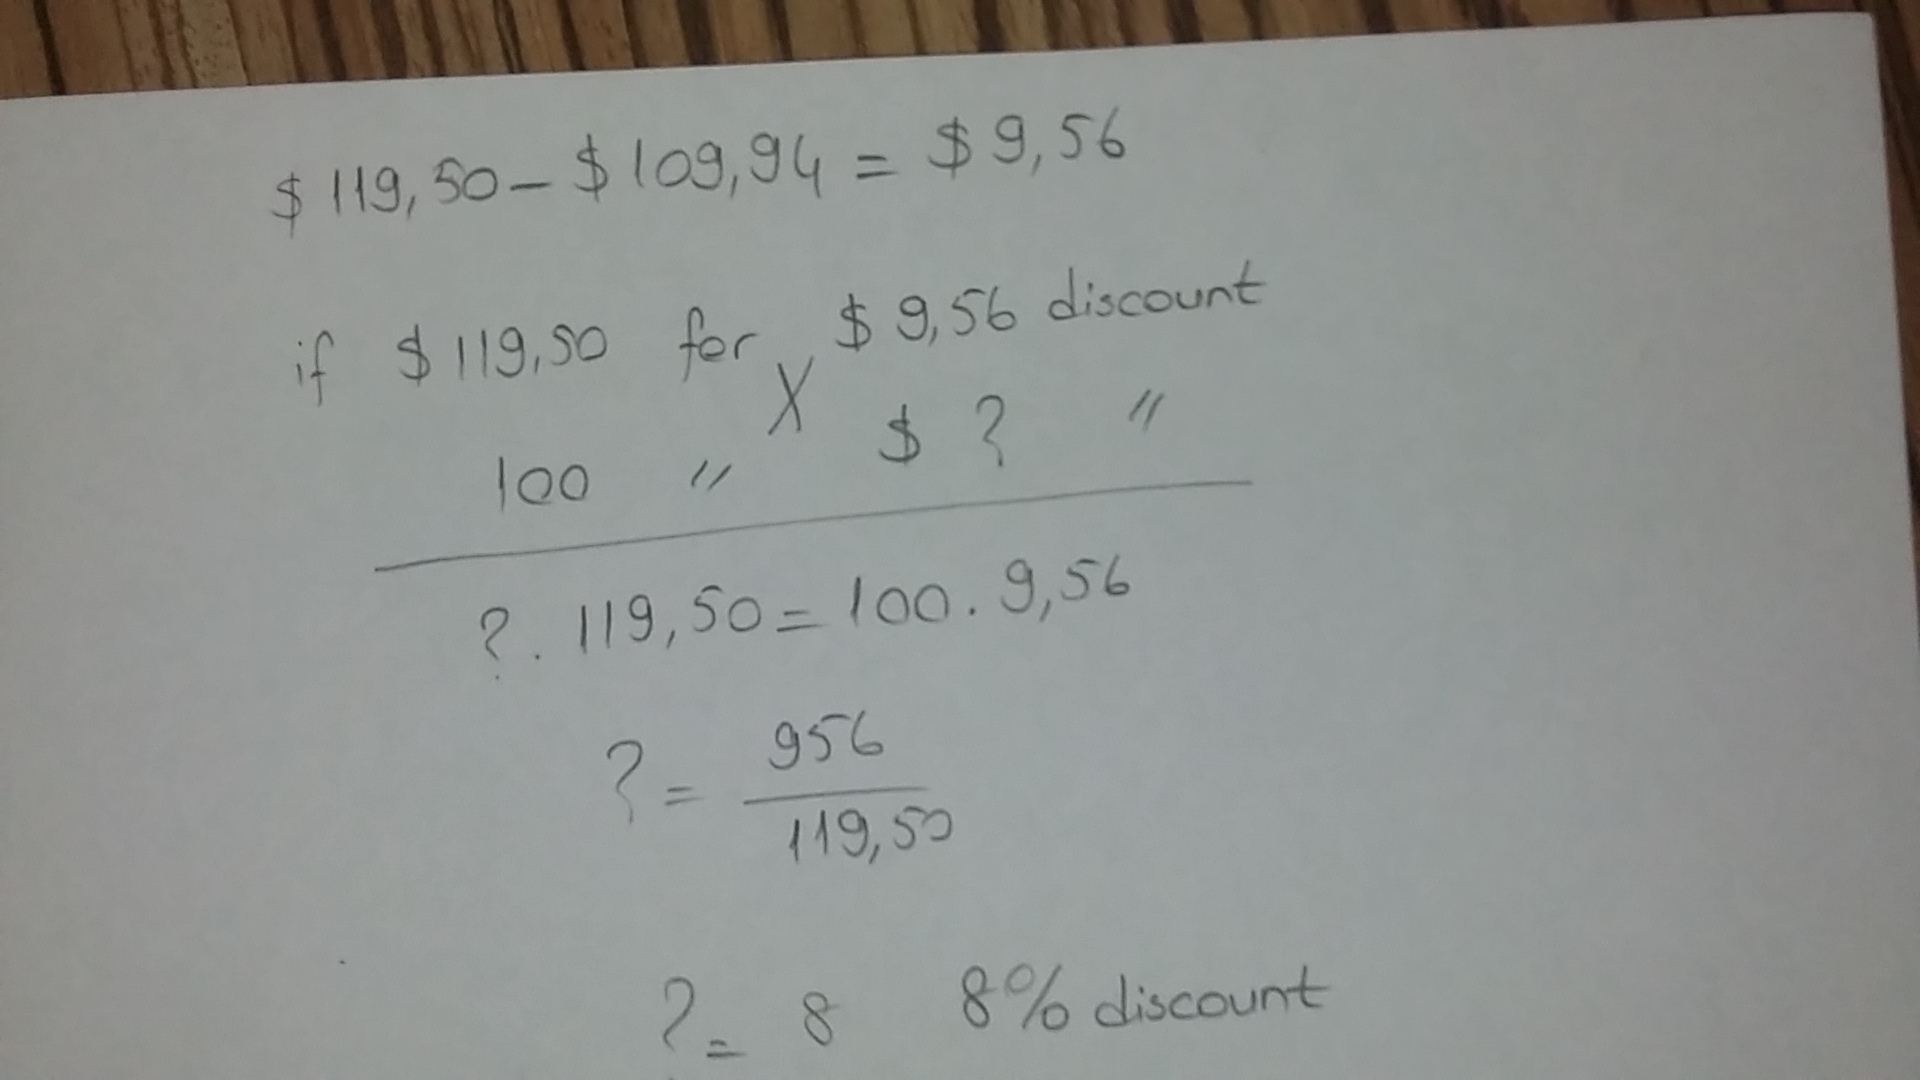 $ 119,50 - $ 109,94 = $ 9,56
if $ 119,50 for $ 9,56 discount
X
100 " $ ? "
? . 119,50 = 100 . 9,56
? = 956
119,50
? = 8 8% discount